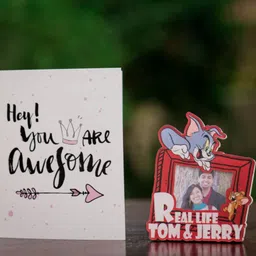 Hey!
You ARE
Awesome
REAL LIFE
TOM & JERRY